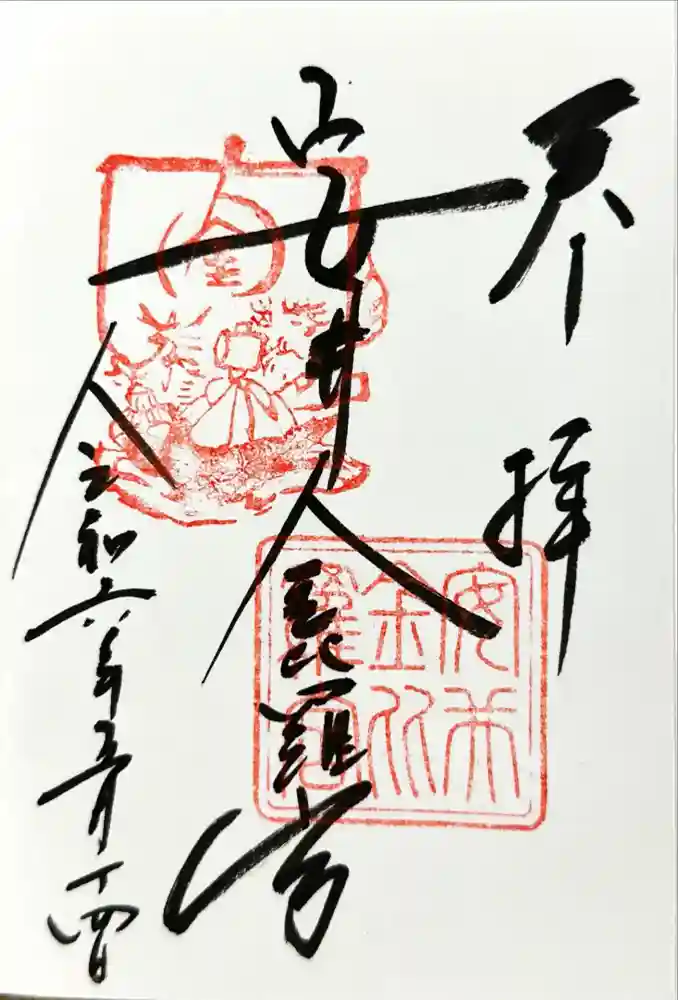 奉拝
安井金毘羅宮
令和六年五月十四日
安井
金比
羅宮
金